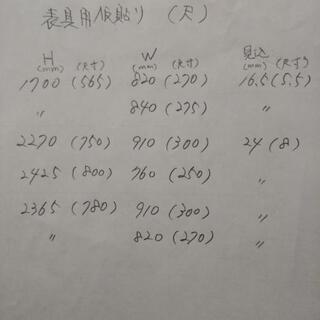 表具用仮貼り (尺)
H W 見込
(mm) (尺寸) (mm) (尺寸) (mm) (尺寸)
1700 (565) 820 (270) 16.5 (5.5)
840 (275) 〃
2270 (750) 910 (300) 24 (8)
2425 (800) 760 (250) 〃
2365 (780) 910 (300) 〃
〃 820 (270) 〃